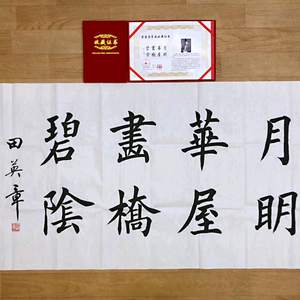 收藏证书
月明
華屋
畫橋
碧陰
田英章